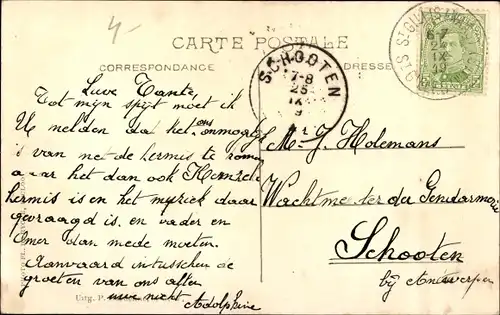 4-
CARTE POSTALE
CORRESPONDANCE
ADRESSE
SCHOOTEN
7-8
25
IX
ST GILLIS
6-7
24
IX
19
Luve Tante
Tot mijn spijt moet ik
U melden dat het ons onmogelijk
is van ne de kermis te komen
aaar het dan ook
kermis is en het myziek daar
gevraagd is. en vader en
Omer dan mede moeten.
Aanvaard intusschen de
groeten van ons allen
uwe nicht Adolphine
M. J. Holemans
Wachtmeester der Gendarmerie
Schooten
bij Antwerpen
Uitg. P.